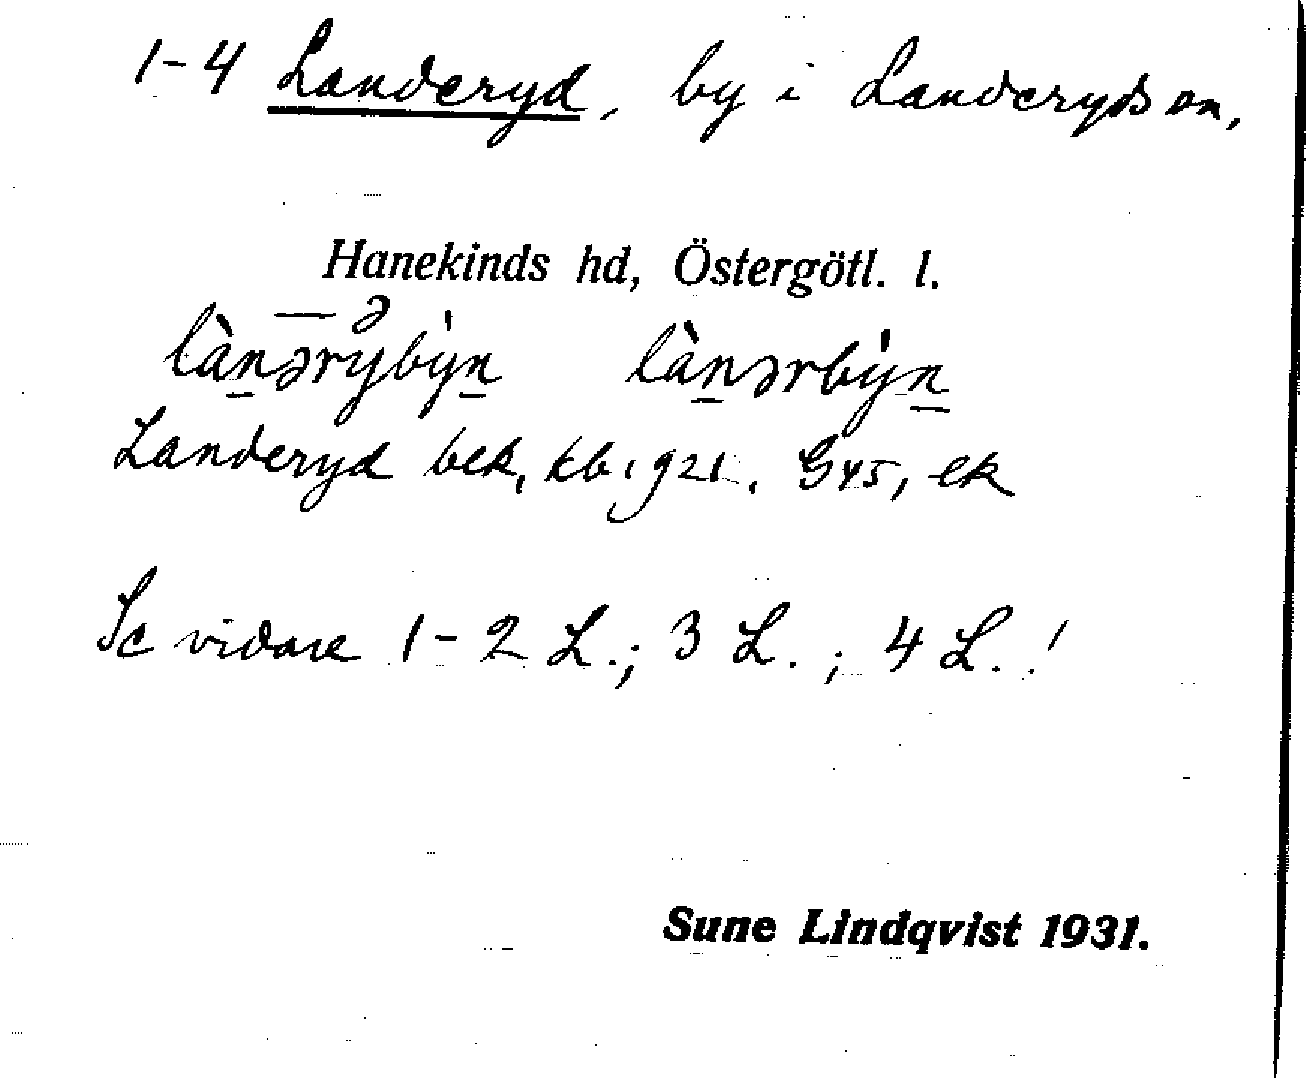 1-4 Landeryd, by i Landeryds sn,
Hanekinds hd, Östergötl. l.
— ə
làn̲ərybýn̲ làn̲ərbýn̲
Landeryd bek, kb 1921. G45, ek
Se vidare 1-2 L.; 3 L. ; 4 L. !
Sune Lindqvist 1931.